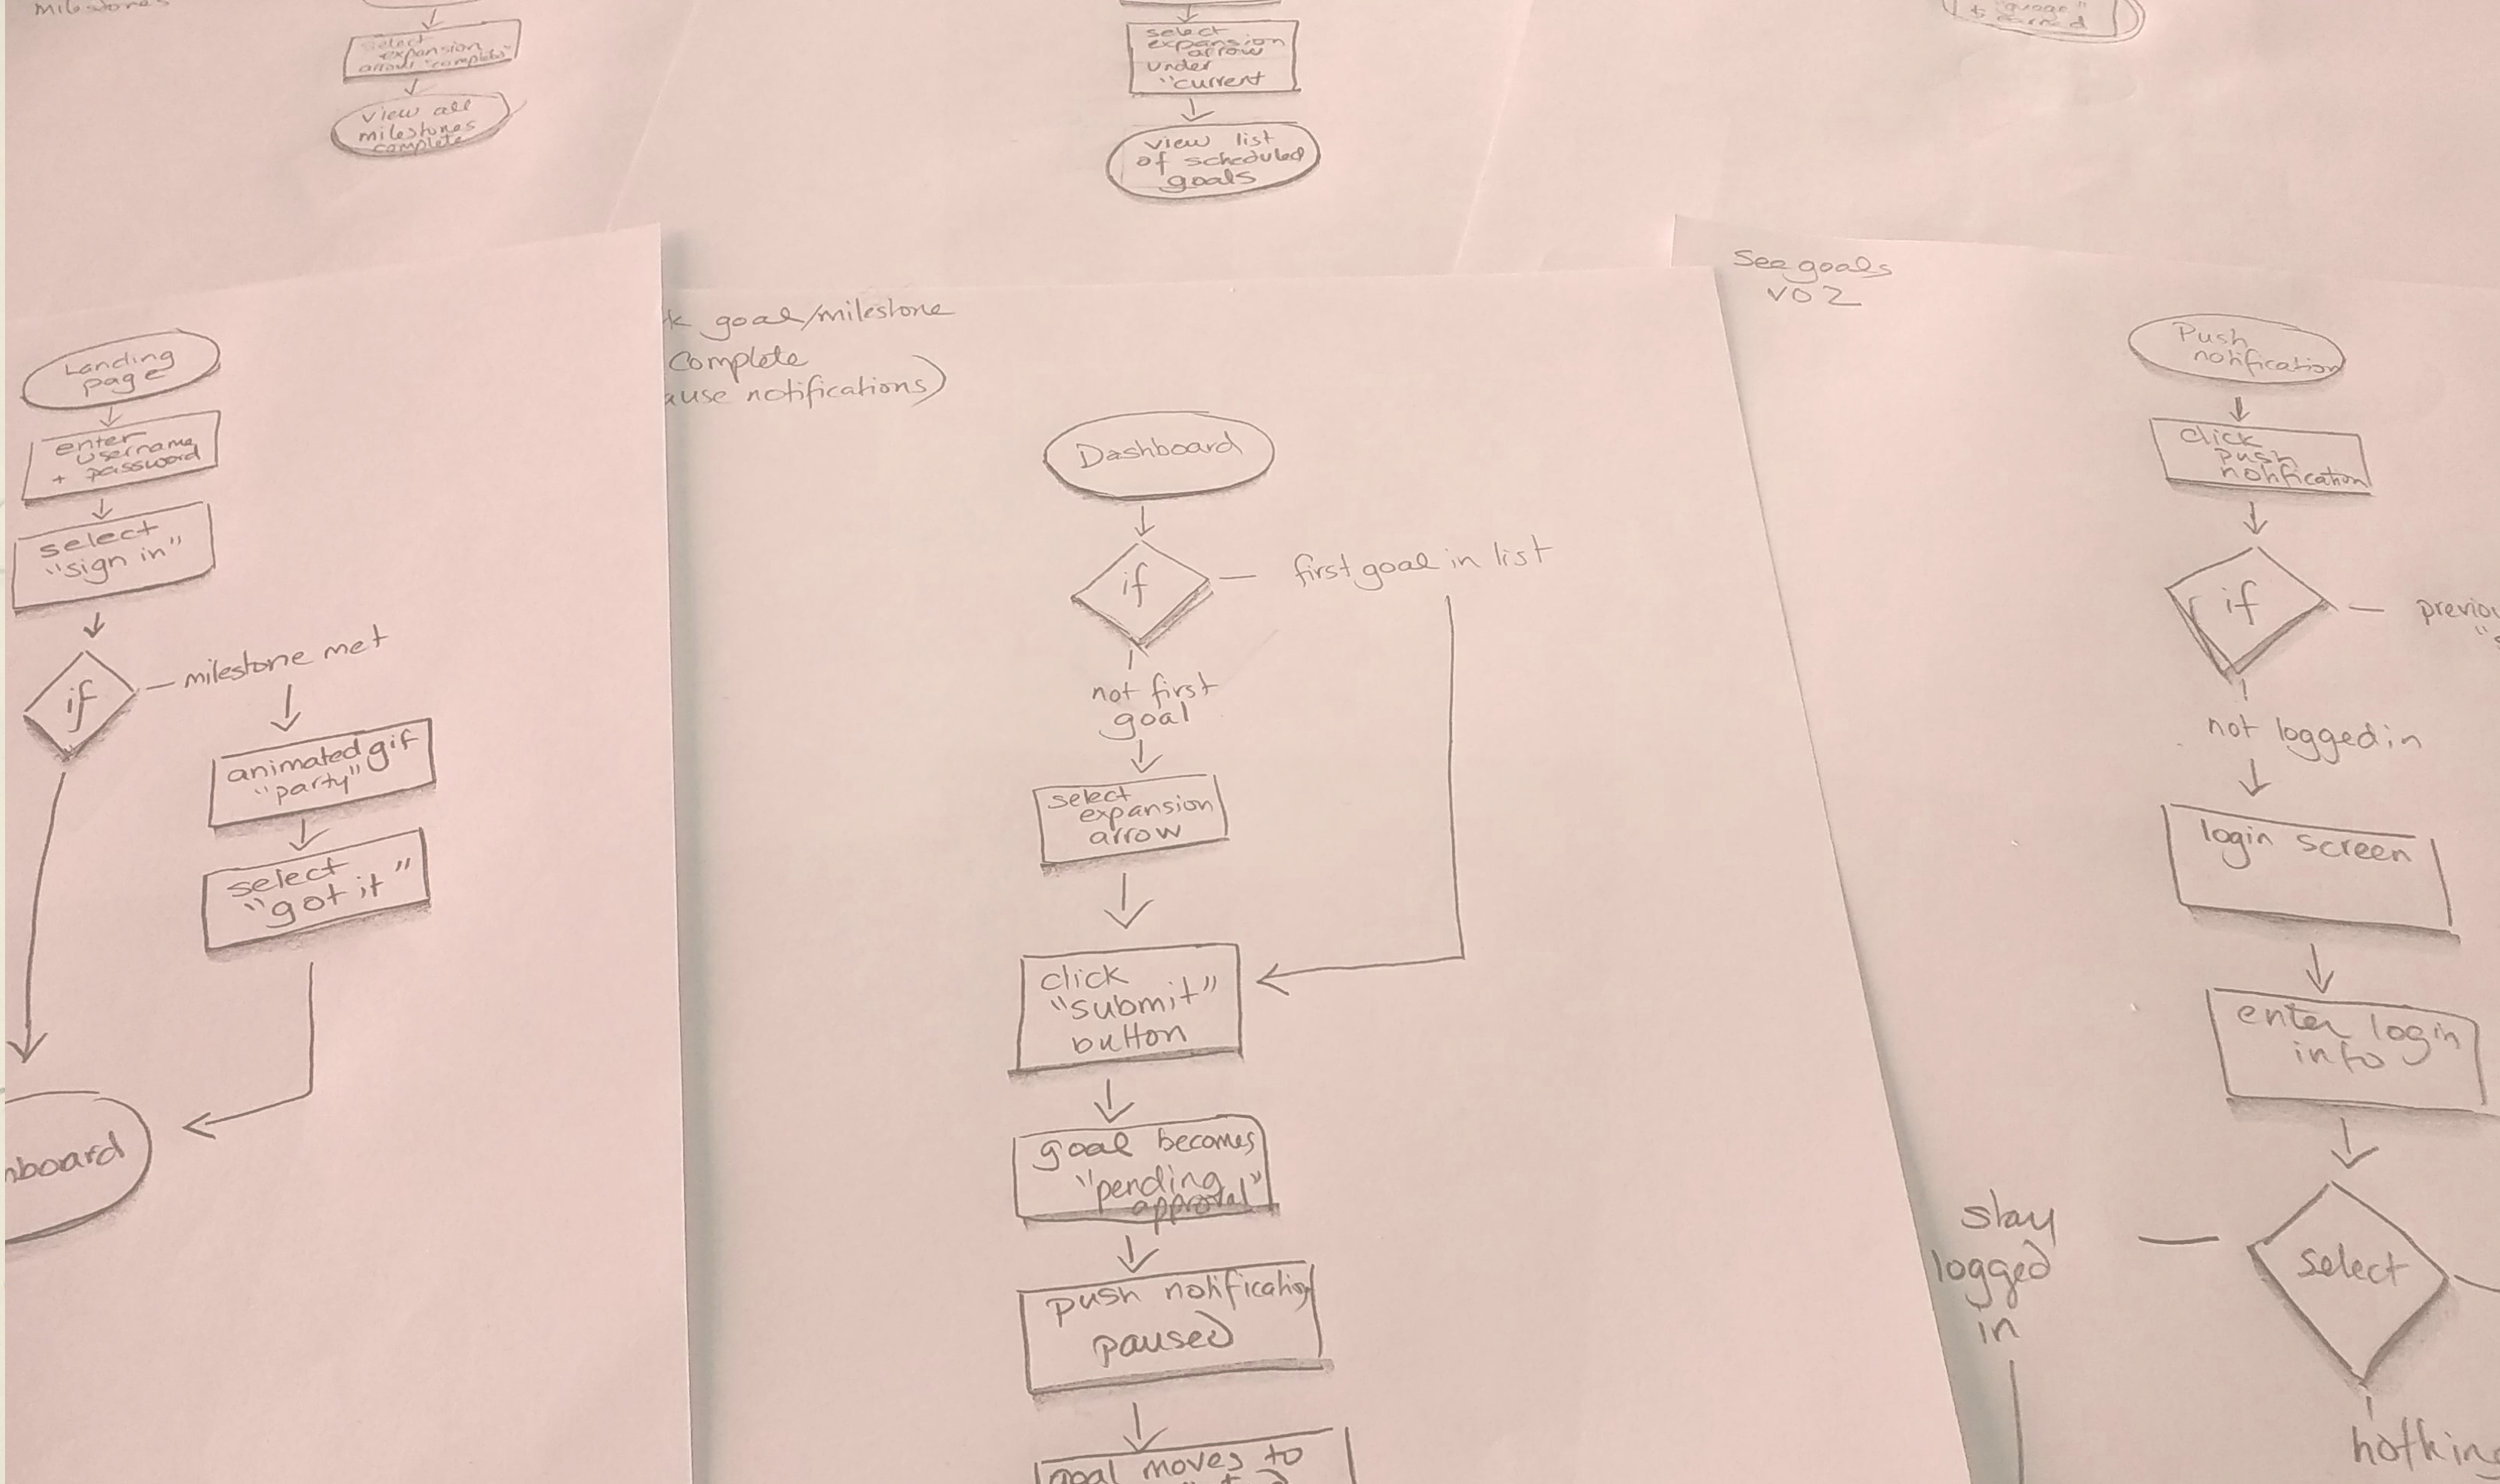 milestones
select
expansion
arrow "complete"
view all
milestones
complete
select
expansion
arrow
under
"current
view list
of scheduled
goals
$ earned
Landing
page
enter
username
+ password
select
"sign in"
if
milestone met
animated gif
"party"
select
"got it"
hboard
k goal/milestone
complete
ause notifications)
Dashboard
if
first goal in list
not first
goal
select
expansion
arrow
click
"submit"
button
goal becomes
"pending
approval"
push notification
paused
goal moves to
See goals
V02
Push
notification
click
push
notification
if
previou
not logged in
login screen
enter login
info
select
stay
logged
in
nothing